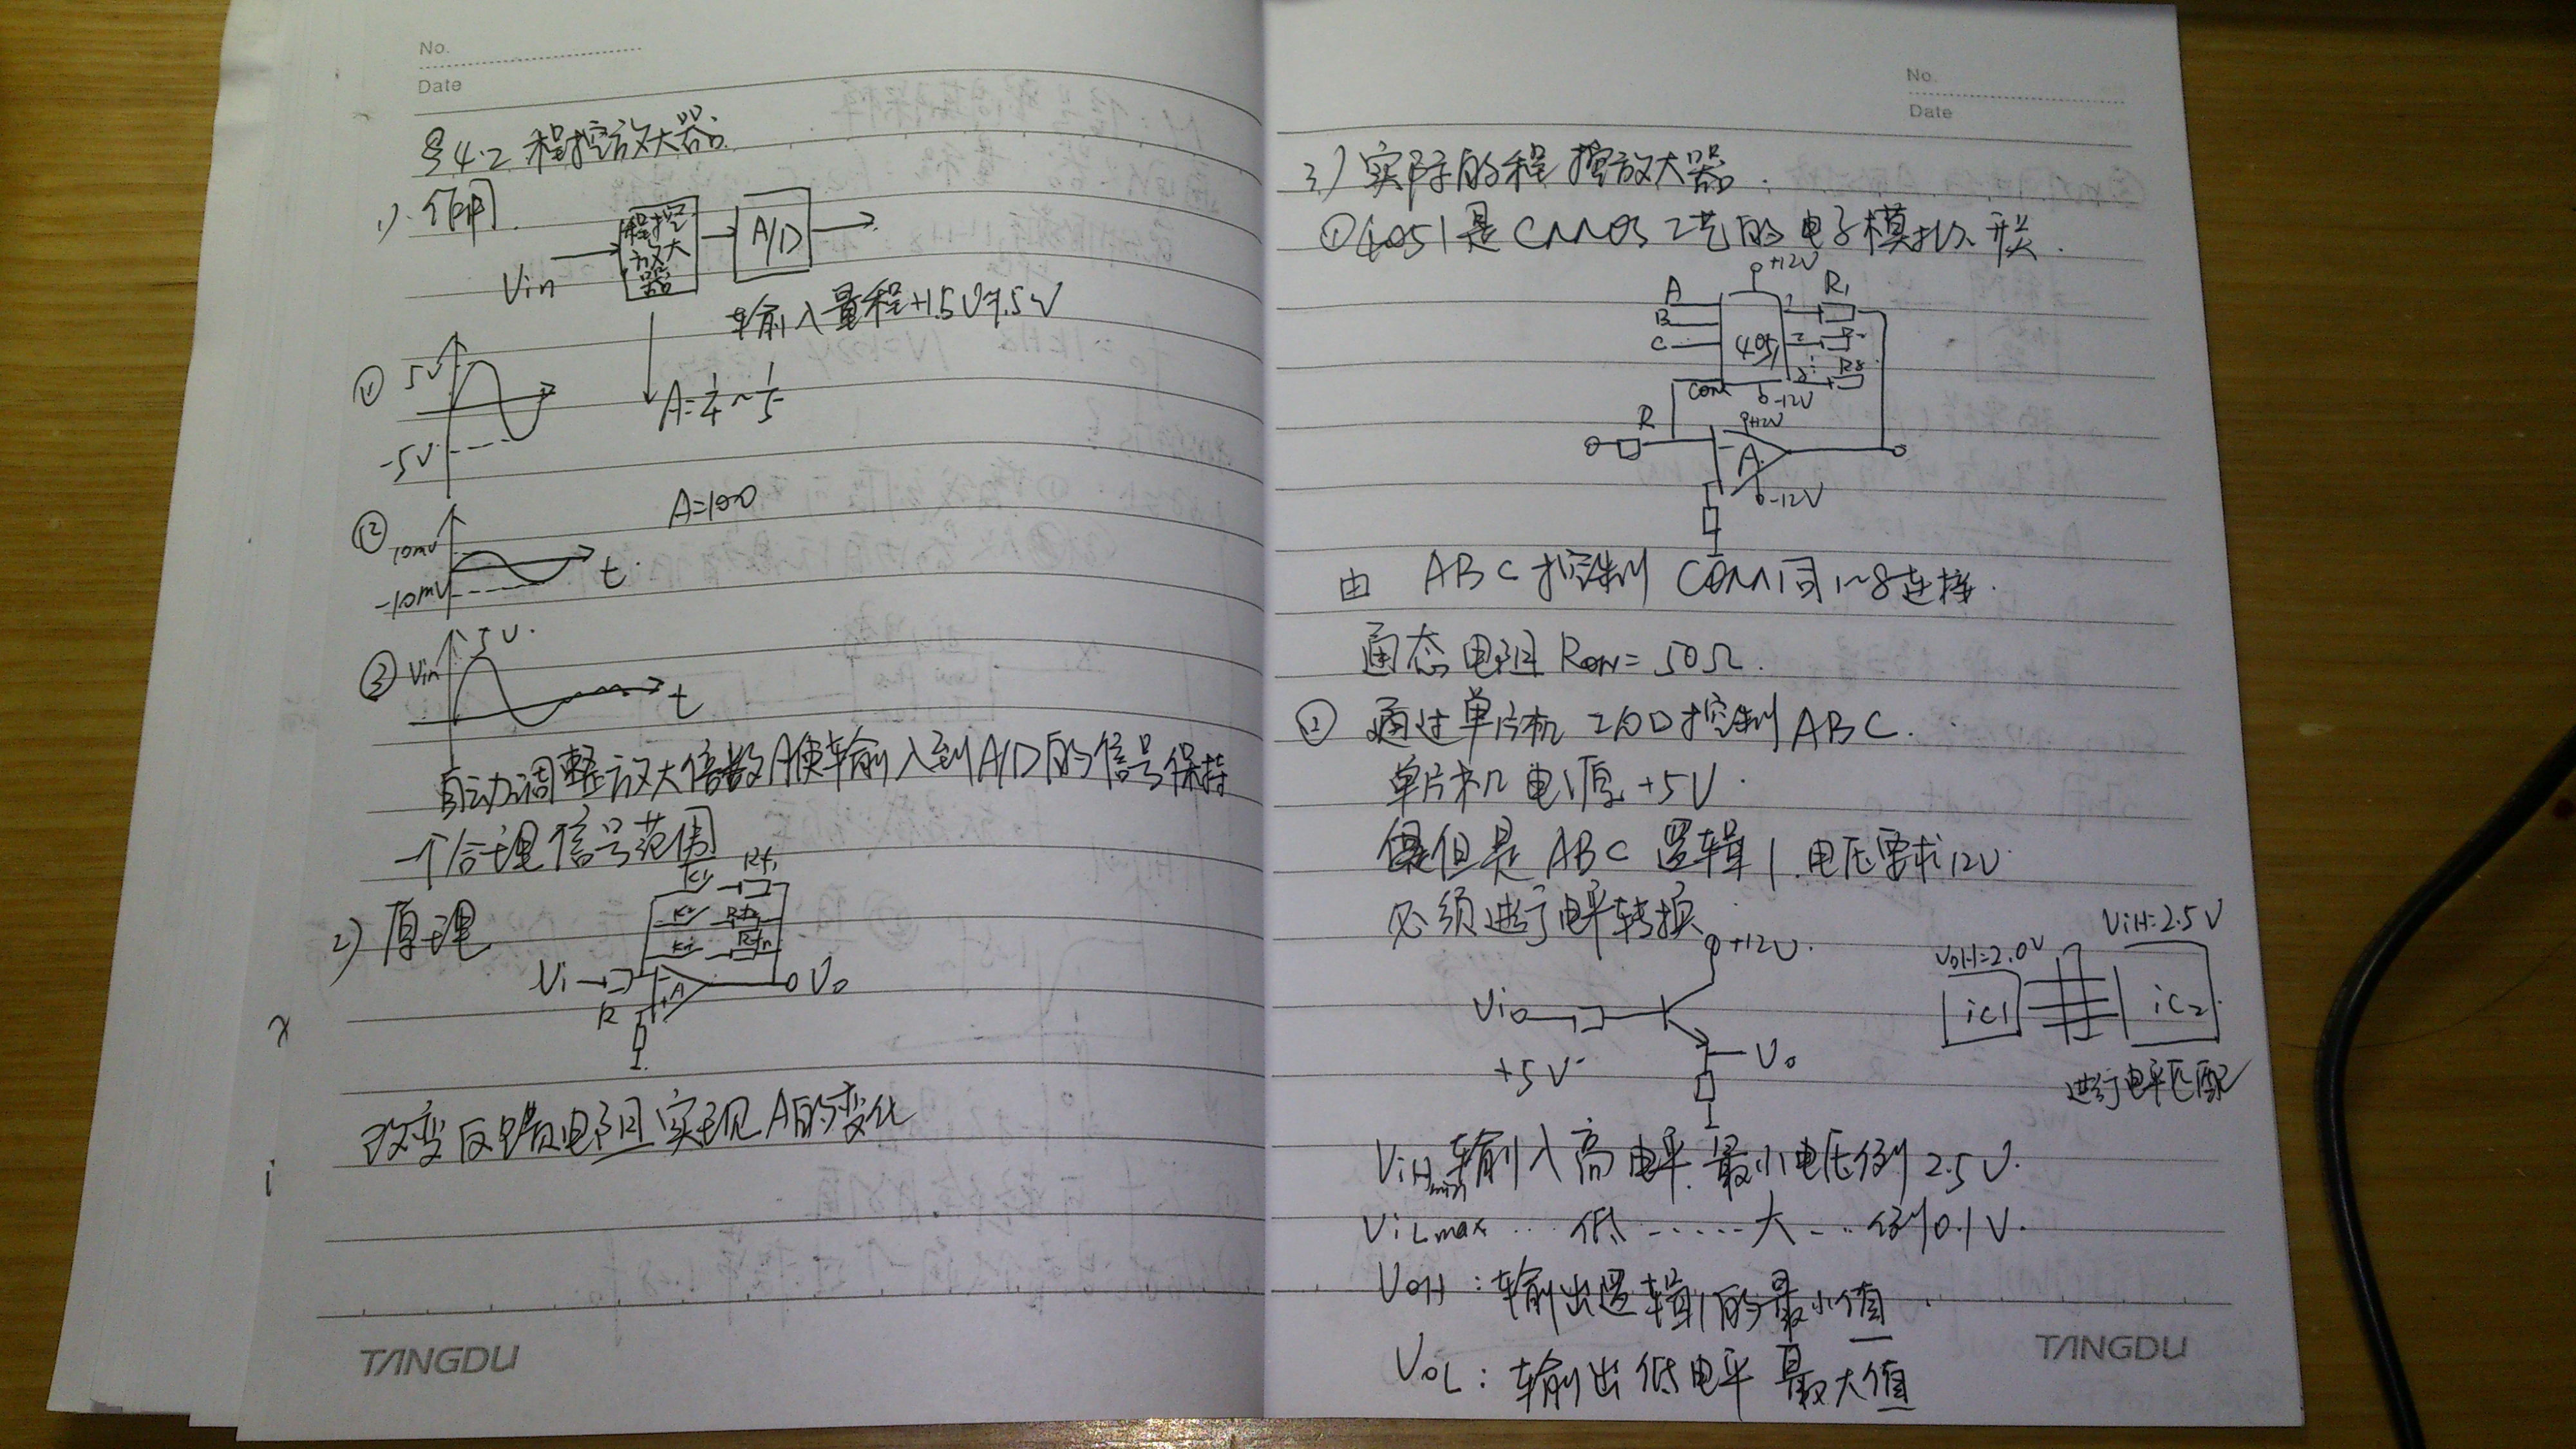 No.
Date
§4.2 程控放大器
1) 作用
程控
放大
器
A/D
Vin
输入量程+1.5V
5V
①
A=1/4~1/5
-5V
A=100
②
10mV
-10mV
t
5V
③ Vin
t
自动调整放大倍数A使输入到A/D的信号保持
一个合理信号范围
2) 原理
K1 Rf1
K2 Rf2
Rfn
Vi
A
Vo
R
改变反馈电阻实现A的变化
TANGDU
No.
Date
3) 实际的程控放大器.
①4051是CMOS工艺的电子模拟开关.
+12V
A
B
C
1 R1
4051
2
8 R8
COM
-12V
R
+12V
A
-12V
由 ABC控制 COM同1~8连接.
通态电阻 RON=50Ω.
② 通过单片机 I/O口控制ABC.
单片机电源+5V.
但是 ABC 逻辑1.电压要求12V
必须进行电平转换
+12V
Vi
+5V
Vo
VOH=2.0V
ViH=2.5V
ic1
ic2
进行电平匹配
ViHmin 输入高电平最小电压例2.5V.
ViLmax ... 低 ...... 大 ... 例0.1V.
VOH：输出逻辑1的最小值
VOL：输出低电平最大值
TANGDU